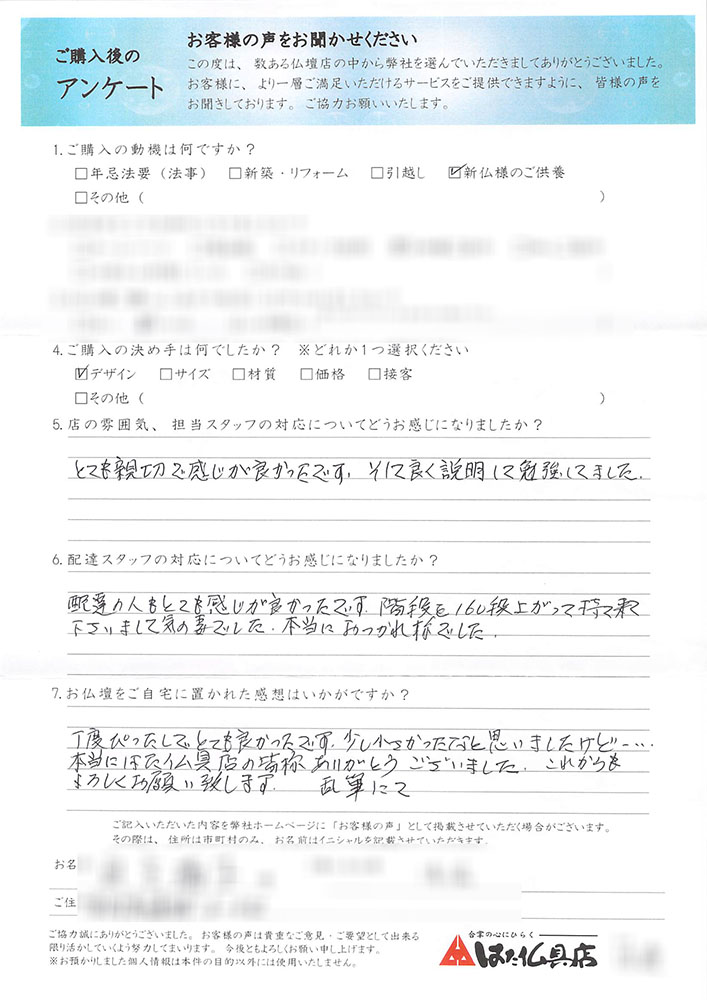 ご購入後の
アンケート
お客様の声をお聞かせください
この度は、数ある仏壇店の中から弊社を選んでいただきましてありがとうございました。
お客様に、より一層ご満足いただけるサービスをご提供できますように、皆様の声を
お聞きしております。ご協力お願いいたします。
1.ご購入の動機は何ですか?
□年忌法要(法事) □新築・リフォーム □引越し ☑新仏様のご供養
□その他( )
4.ご購入の決め手は何でしたか? ※どれか1つ選択ください
☑デザイン □サイズ □材質 □価格 □接客
□その他( )
5.店の雰囲気、担当スタッフの対応についてどうお感じになりましたか?
とても親切で感じが良かったです。そして良く説明して勉強してました.
6.配達スタッフの対応についてどうお感じになりましたか?
配達の人もとても感じが良かったです.階段を160段上がって持て来て
下さいまして気の毒でした.本当におつかれ様でした.
7.お仏壇をご自宅に置かれた感想はいかがですか?
丁度ぴったしでとても良かったです.少し小さかったなと思いましたけど……
本当にはた仏具店の皆様ありがとうございました.これからも
よろしくお願い致します. 乱筆にて
ご記入いただいた内容を弊社ホームページに「お客様の声」として掲載させていただく場合がございます。
その際は、住所は市町村のみ、お名前はイニシャルを記載させていただきます。
お名
ご住
ご協力誠にありがとうございました。お客様の声は貴重なご意見・ご要望として出来る
限り活かしていくよう努力してまいります。今後ともよろしくお願い申し上げます。
※お預かりしました個人情報は本件の目的以外には使用いたしません。
合掌の心にひらく
はた仏具店